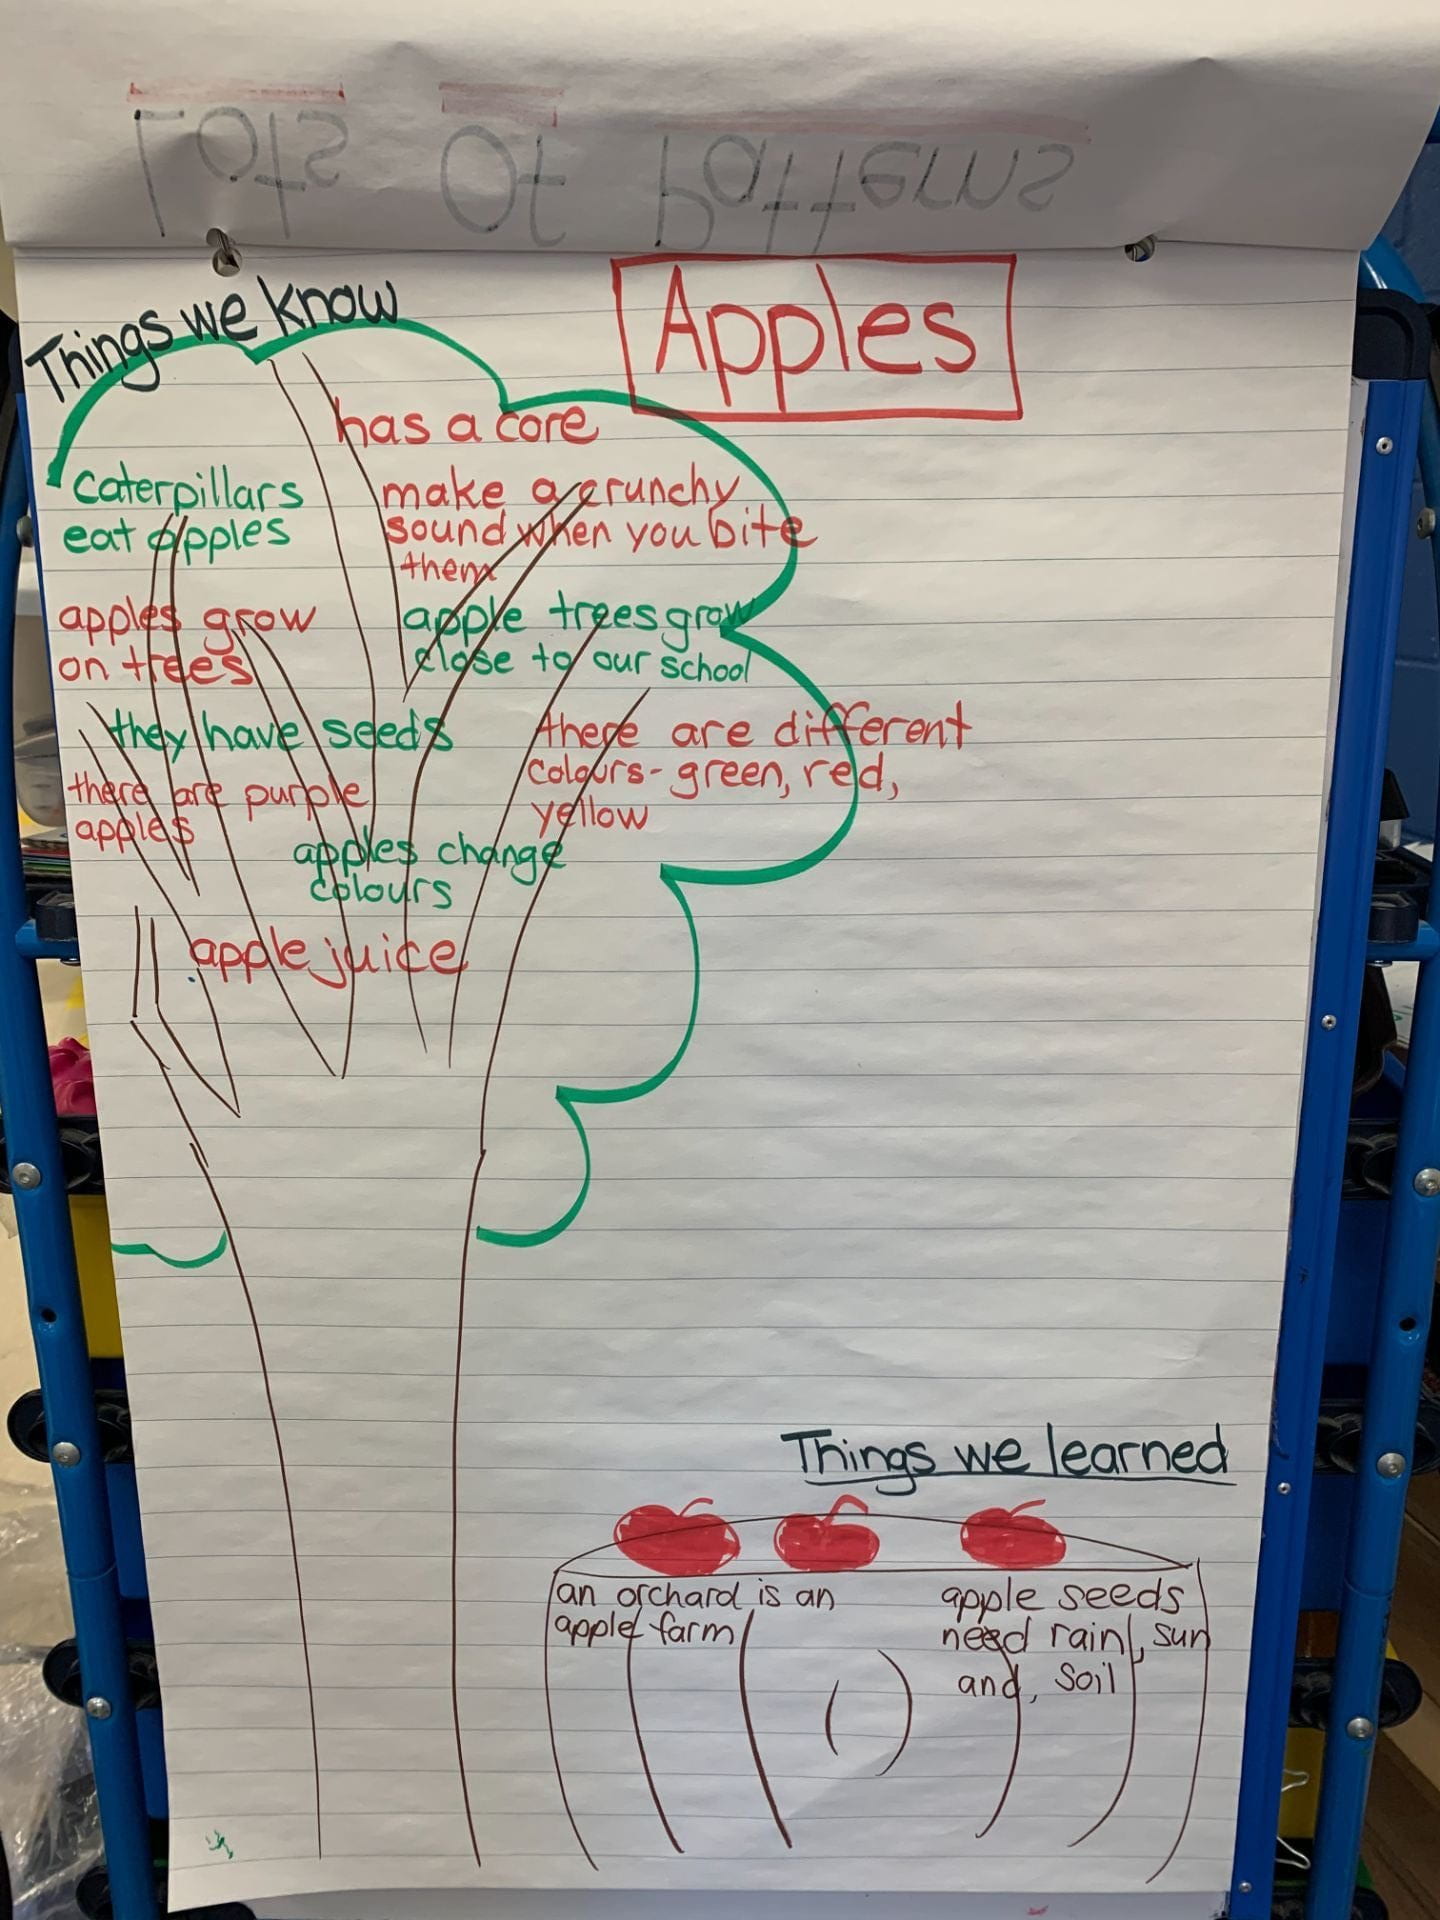 Lots Of Patterns
Things we know
Apples
has a core
caterpillars
eat apples
make a crunchy
sound when you bite
them
apples grow
on trees
apple trees grow
close to our school
they have seeds
there are different
colours - green, red,
yellow
there are purple
apples
apples change
colours
apple juice
Things we learned
an orchard is an
apple farm
apple seeds
need rain, sun
and, soil